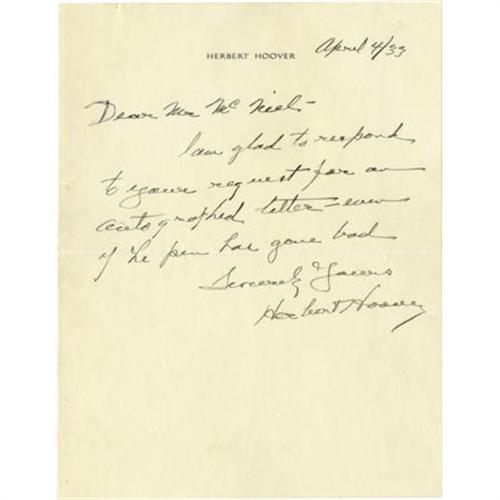 HERBERT HOOVER
April 4/33
Dear Mr Mc Niel -
I am glad to respond
to your request for an
autographed letter - even
if the pen has gone bad
Sincerely Yours
Herbert Hoover